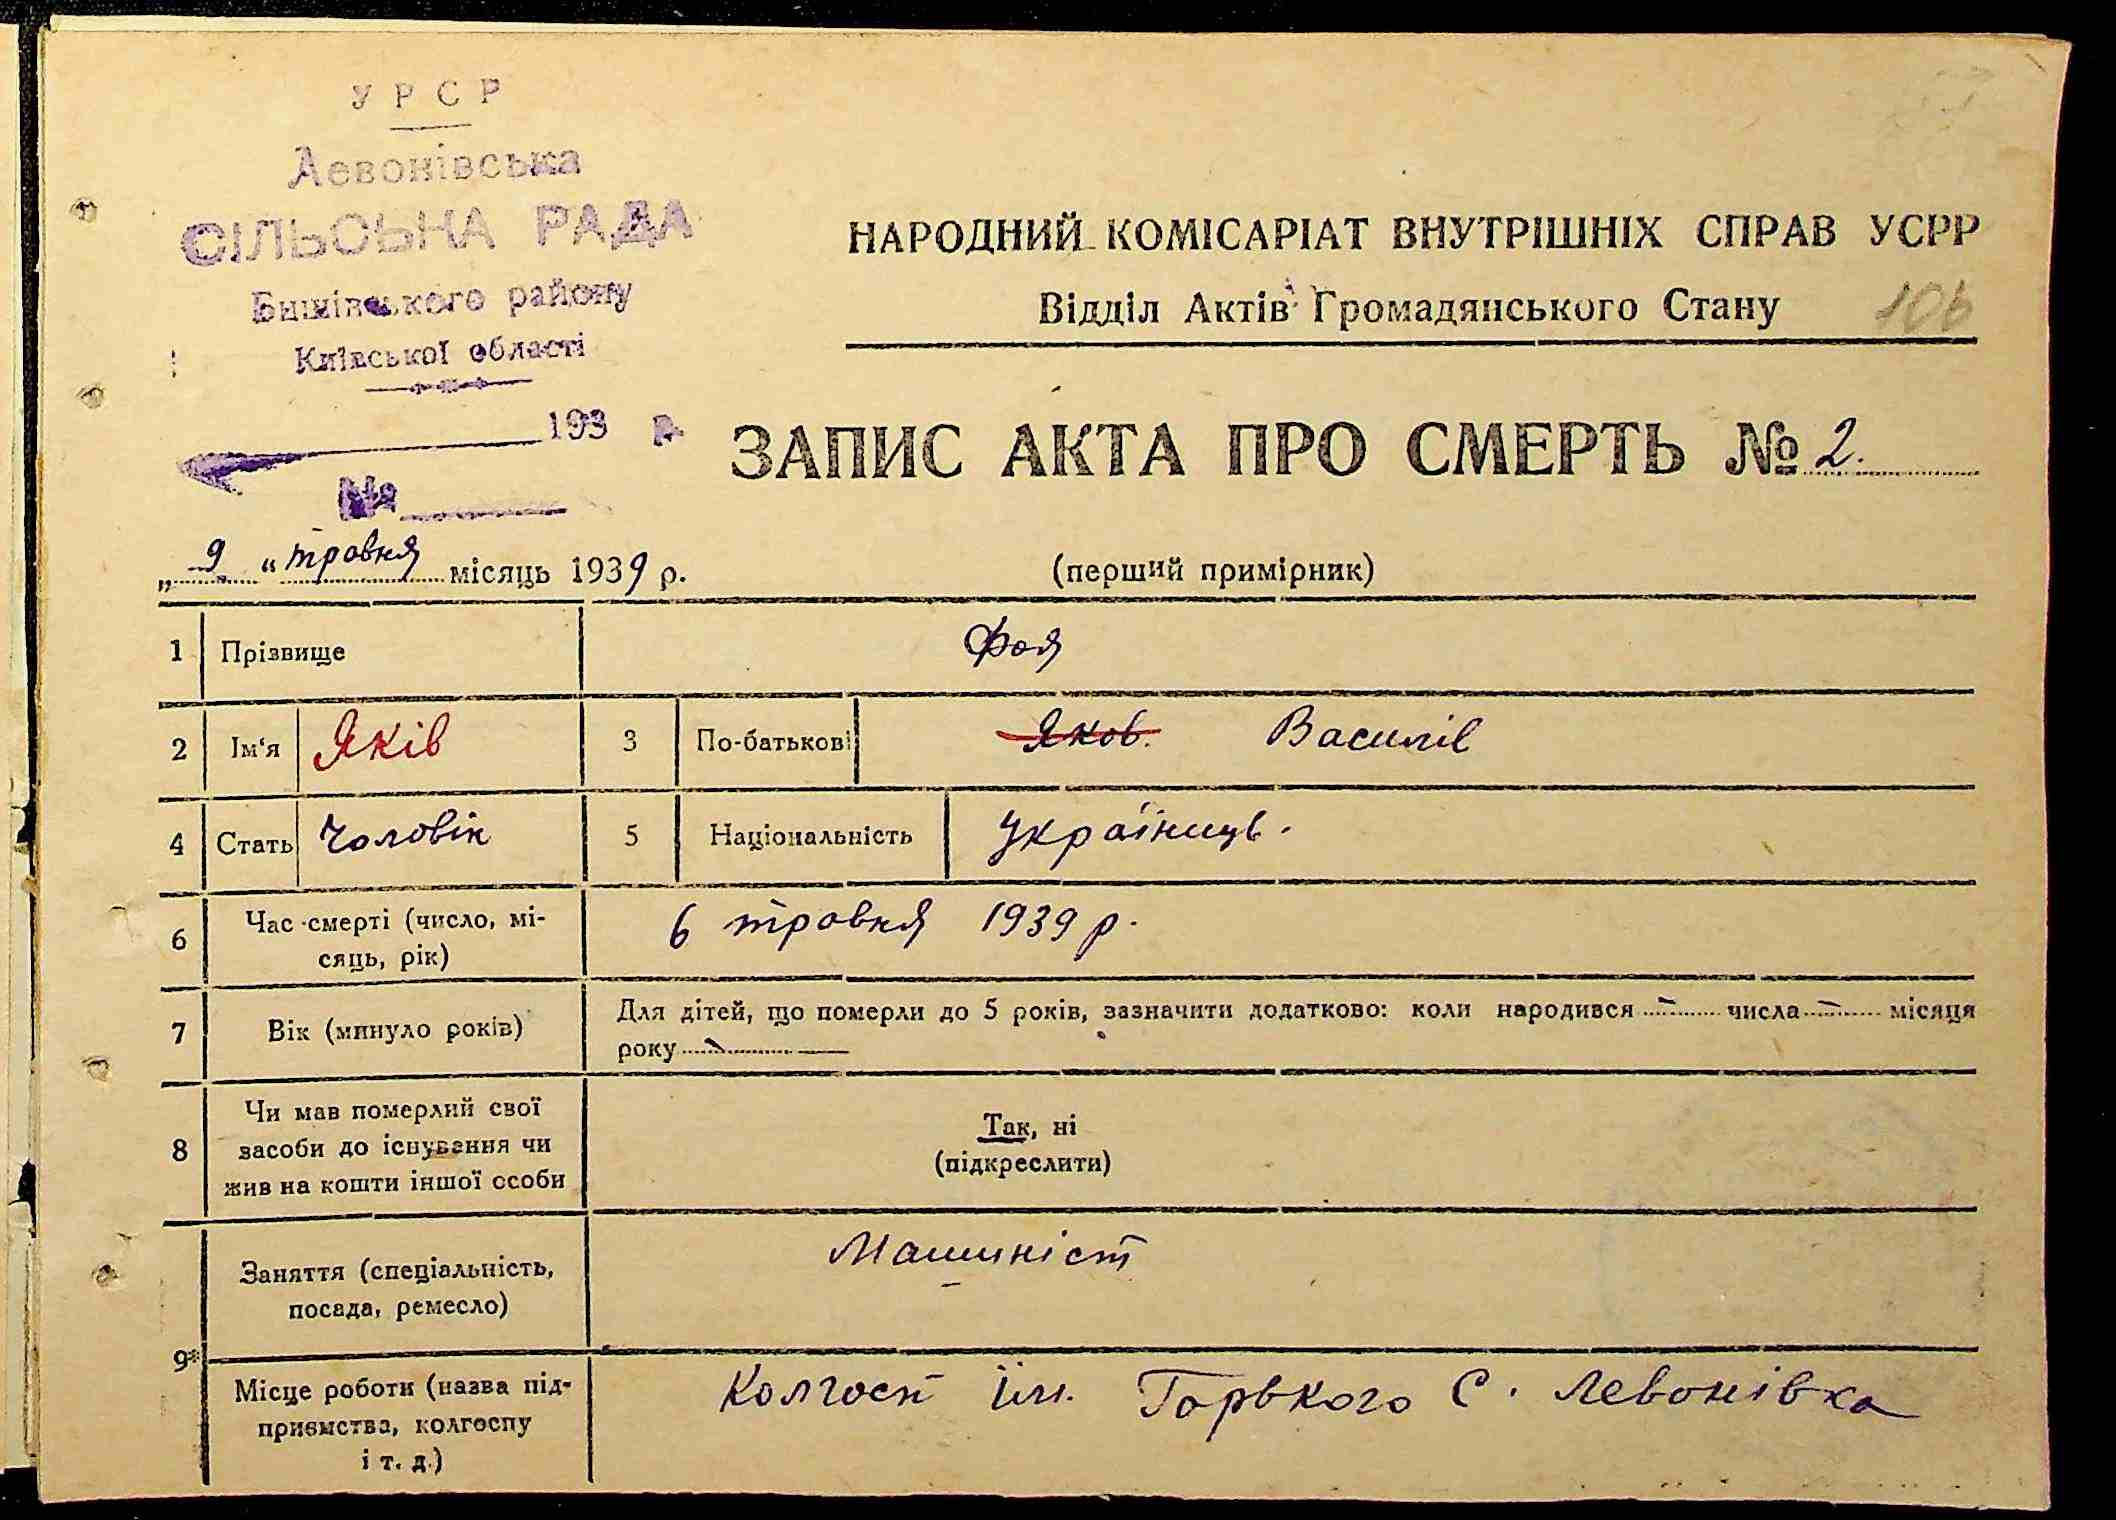 УРСР
Левонівська
СІЛЬСЬКА РАДА
Бишівського району
Київської області
193 р.
№
НАРОДНИЙ КОМІСАРІАТ ВНУТРІШНІХ СПРАВ УСРР
Відділ Актів Громадянського Стану
106
ЗАПИС АКТА ПРО СМЕРТЬ № 2.
„ 9 “ травня місяць 1939 р.
(перший примірник)
1 Прізвище Фоя
2 Ім‘я Яків 3 По-батькові Яков. Василів
4 Стать Чоловік 5 Національність Українець.
6 Час смерті (число, мі-
сяць, рік) 6 травня 1939 р.
7 Вік (минуло років) Для дітей, що померли до 5 років, зазначити додатково: коли народився – числа – місяця
року –
8 Чи мав померлий свої
засоби до існування чи
жив на кошти іншої особи
Так, ні
(підкреслити)
9* Заняття (спеціальність,
посада, ремесло) Машиніст
Місце роботи (назва під-
приємства, колгоспу
і т. д.) Колгосп ім. Горького С. Левонівка